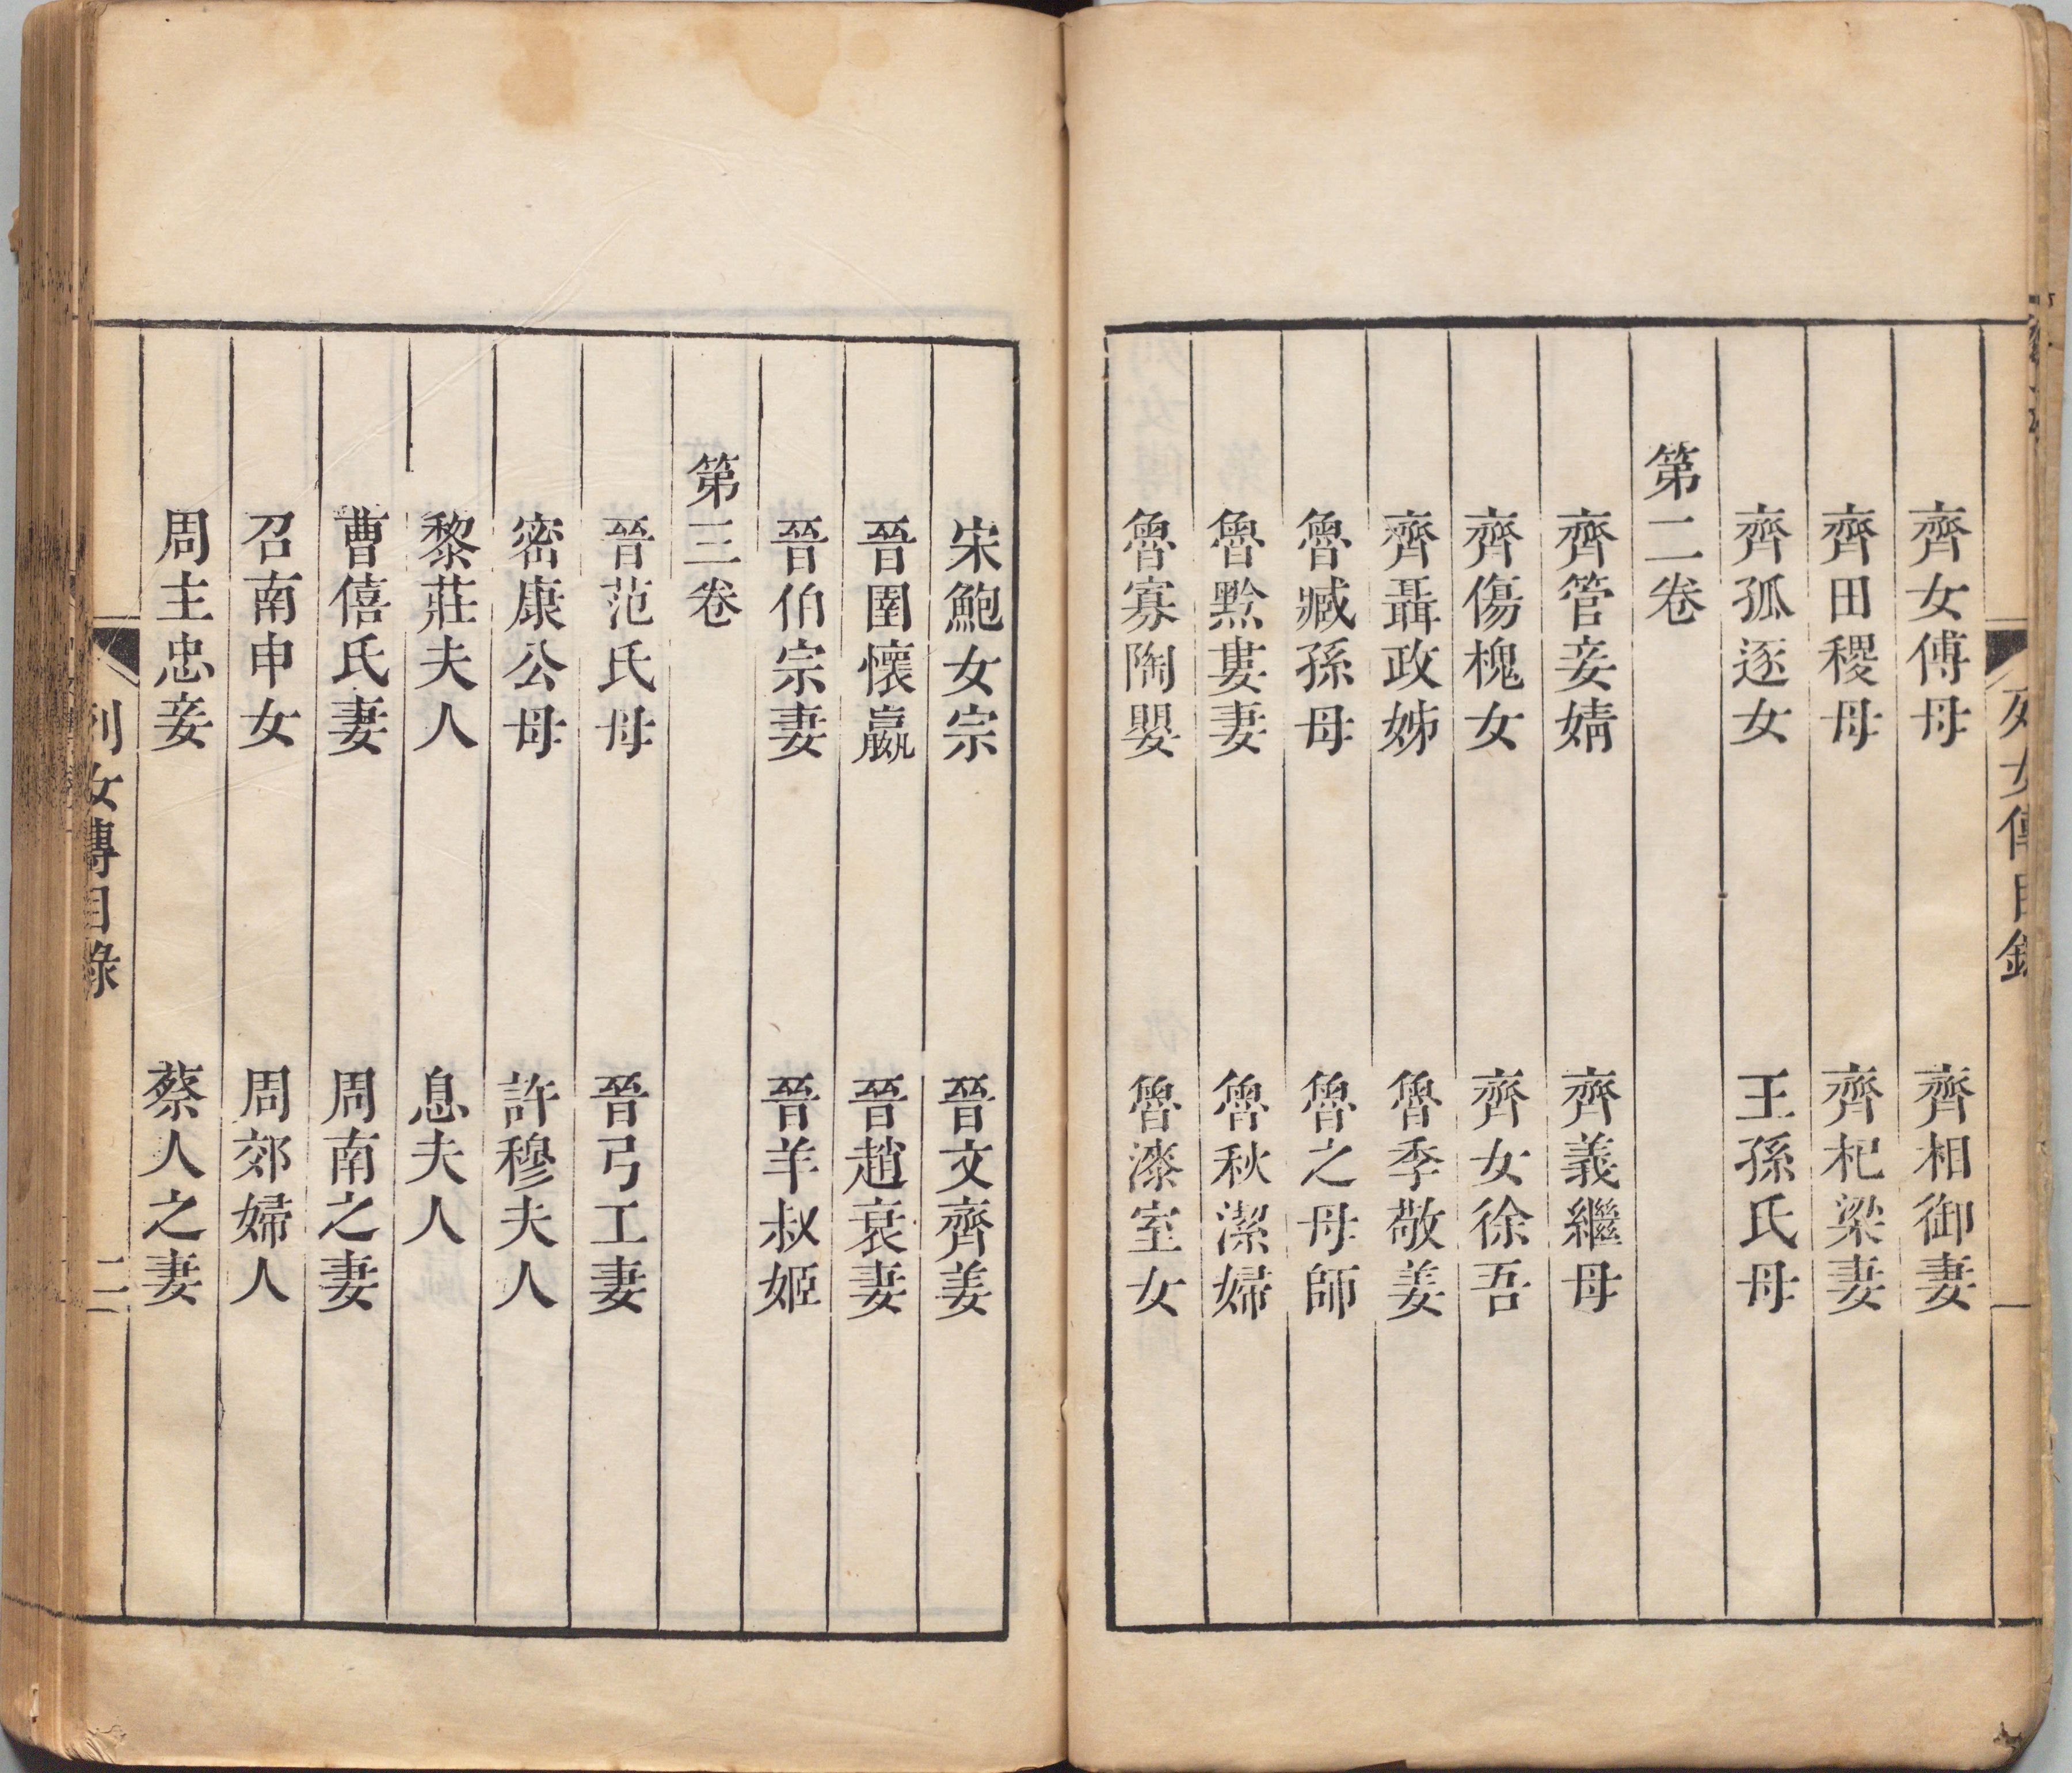 齊女傅母　齊相御妻
齊田稷母　齊杞梁妻
齊孤逐女　王孫氏母
第二卷
齊管妾婧　齊義繼母
齊傷槐女　齊女徐吾
齊聶政姊　魯季敬姜
魯臧孫母　魯之母師
魯黔婁妻　魯秋潔婦
魯寡陶嬰　魯漆室女
宋鮑女宗　晉文齊姜
晉圉懷嬴　晉趙衰妻
晉伯宗妻　晉羊叔姬
第三卷
晉范氏母　晉弓工妻
密康公母　許穆夫人
黎莊夫人　息夫人
曹僖氏妻　周南之妻
召南申女　周郊婦人
周主忠妾　蔡人之妻
列女傳目錄　二